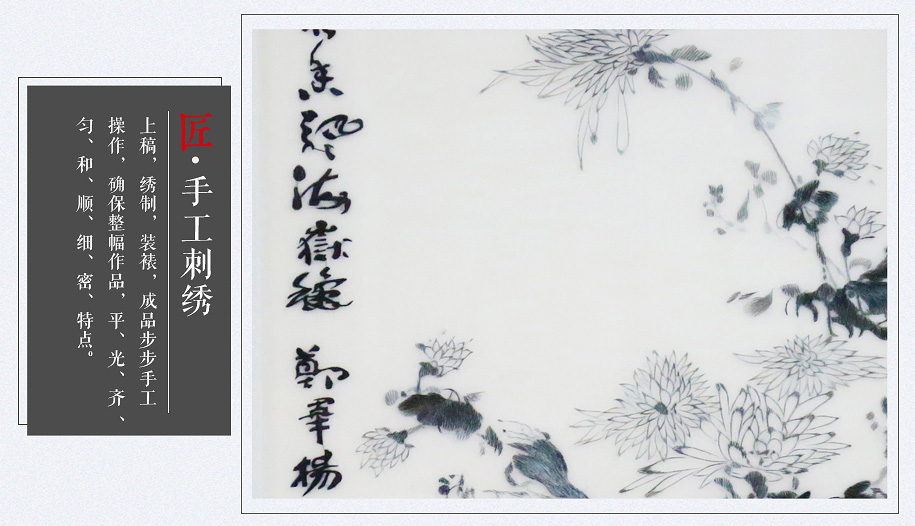 匠·手工刺绣
上稿，绣制，装裱，成品步步手工
操作，确保整幅作品，平、光、齐、
匀、和、顺、细、密、特点。
鄭羣揚